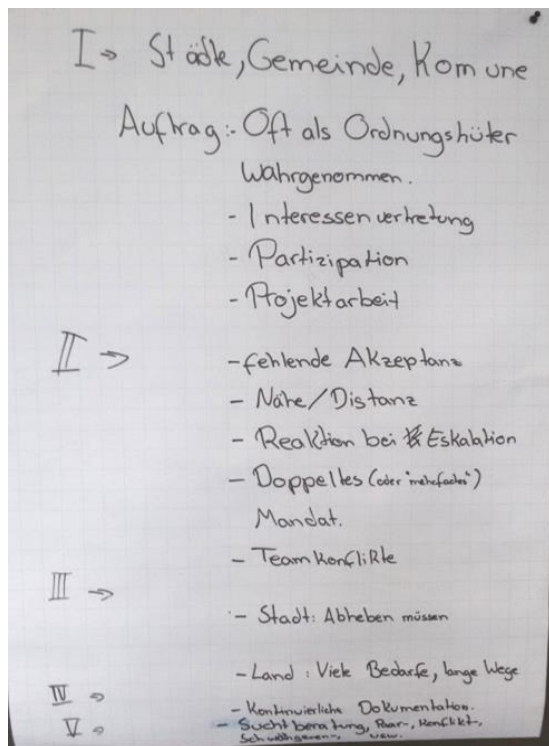 I → Städte, Gemeinde, Komune
Auftrag:- Oft als Ordnungshüter
Wahrgenommen.
- Interessenvertretung
- Partizipation
- Projektarbeit
II →
- fehlende Akzeptanz
- Nähe/Distanz
- Reaktion bei Eskalation
- Doppeltes (oder "mehrfaches")
Mandat.
- Teamkonflikte
III →
- Stadt: Abheben müssen
- Land: Viele Bedarfe, lange Wege
IV → - Kontinuierliche Dokumentation.
V → - Suchtberatung, Paar-, Konflikt-,
Schwangeren-, usw.